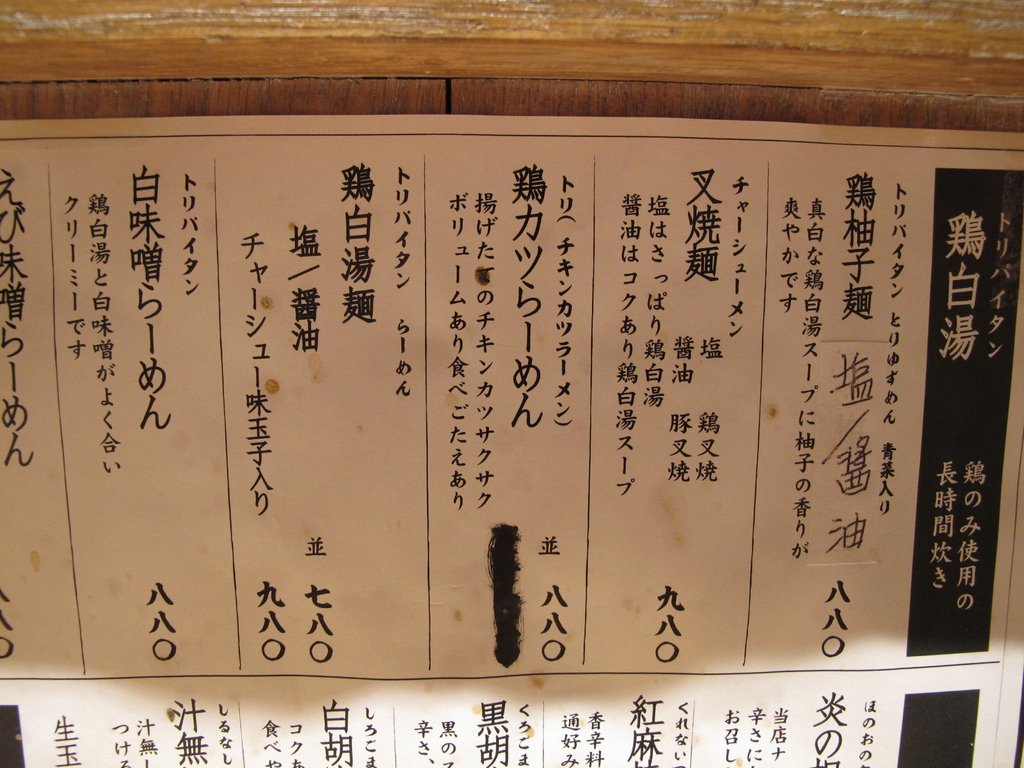 トリパイタン
鶏白湯
鶏のみ使用の
長時間炊き
トリパイタン とりゆずめん 青菜入り
鶏柚子麺 塩/醤油 八八〇
真白な鶏白湯スープに柚子の香りが
爽やかです
チャーシューメン
叉焼麺
塩 鶏叉焼
醤油 豚叉焼
九八〇
塩はさっぱり鶏白湯
醤油はコクあり鶏白湯スープ
トリ(チキンカツラーメン)
鶏カツらーめん 並 八八〇
揚げたてのチキンカツサクサク
ボリュームあり食べごたえあり
トリパイタン らーめん
鶏白湯麺
塩/醤油 並 七八〇
チャーシュー味玉子入り 九八〇
トリパイタン
白味噌らーめん 八八〇
鶏白湯と白味噌がよく合い
クリーミーです
えび味噌らーめん
ほのおの
炎の
当店ナ
辛さに
お召し
くれない
紅麻
香辛料
通好み
くろごま
黒胡
黒の
辛さ、
しろごま
白胡
コクあ
食べや
しるなし
汁無
汁無し
つける
生玉